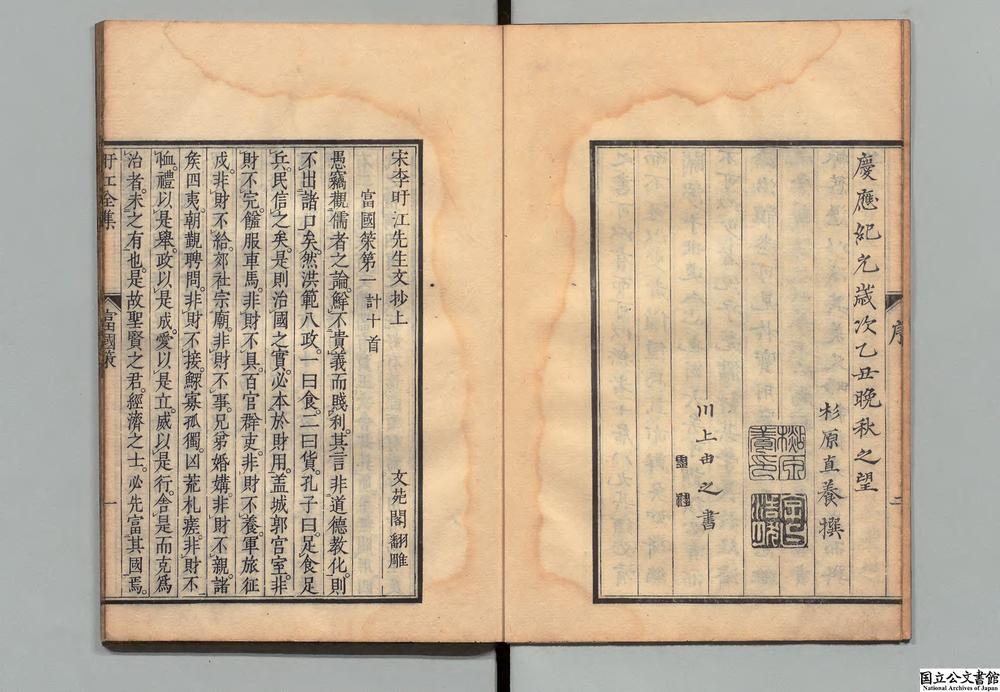 慶應紀元歲次乙丑晚秋之望
杉原直養撰
川上由之書
序
二
宋李盱江先生文抄上
文苑閣翻雕
富國策第一計十首
愚竊觀儒者之論。鮮不貴義而賤利。其言非道德教化。則
不出諸口矣。然洪範八政。一曰食。二曰貨。孔子曰。足食足
兵。民信之矣。是則治國之實。必本於財用。盖城郭宮室。非
財不完。饈服車馬。非財不具。百官群吏。非財不養。軍旅征
戍。非財不給。郊社宗廟。非財不事。兄弟婚媾。非財不親。諸
矦四夷。朝觀聘問。非財不接。鰥寡孤獨。凶荒札瘥。非財不
恤。禮以是舉。政以是成。愛以是立。威以是行。舍是而克爲
治者。未之有也。是故聖賢之君。經濟之士。必先富其國焉。
盱江全集
富國策
一
国立公文書館
National Archives of Japan